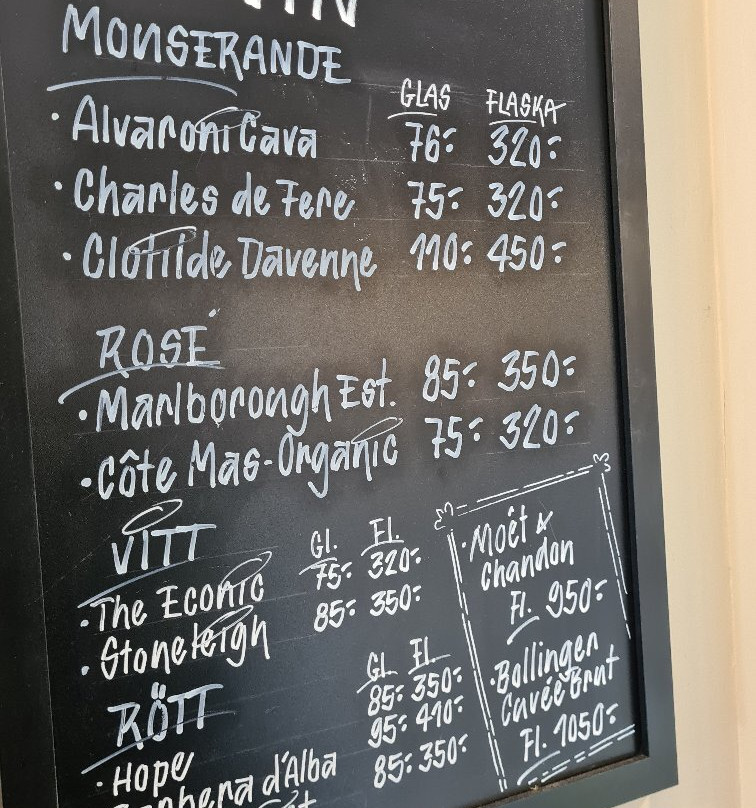 MONSERANDE
GLAS FLASKA
· Alvaroni Cava 76:- 320:-
· Charles de Fere 75:- 320:-
· Clotilde Davenne 110:- 450:-
ROSÉ
· Marlborough Est. 85:- 350:-
· Côte Mas-Organic 75:- 320:-
VITT Gl. Fl.
· The Econic 75:- 320:-
· Stoneleigh 85:- 350:-
RÖTT Gl. Fl.
· Hope 85:- 350:-
d'Alba 95:- 410:-
85:- 350:-
· Moêt &
Chandon
Fl. 950:-
· Bollinger
Cuvée Brut
Fl. 1050:-